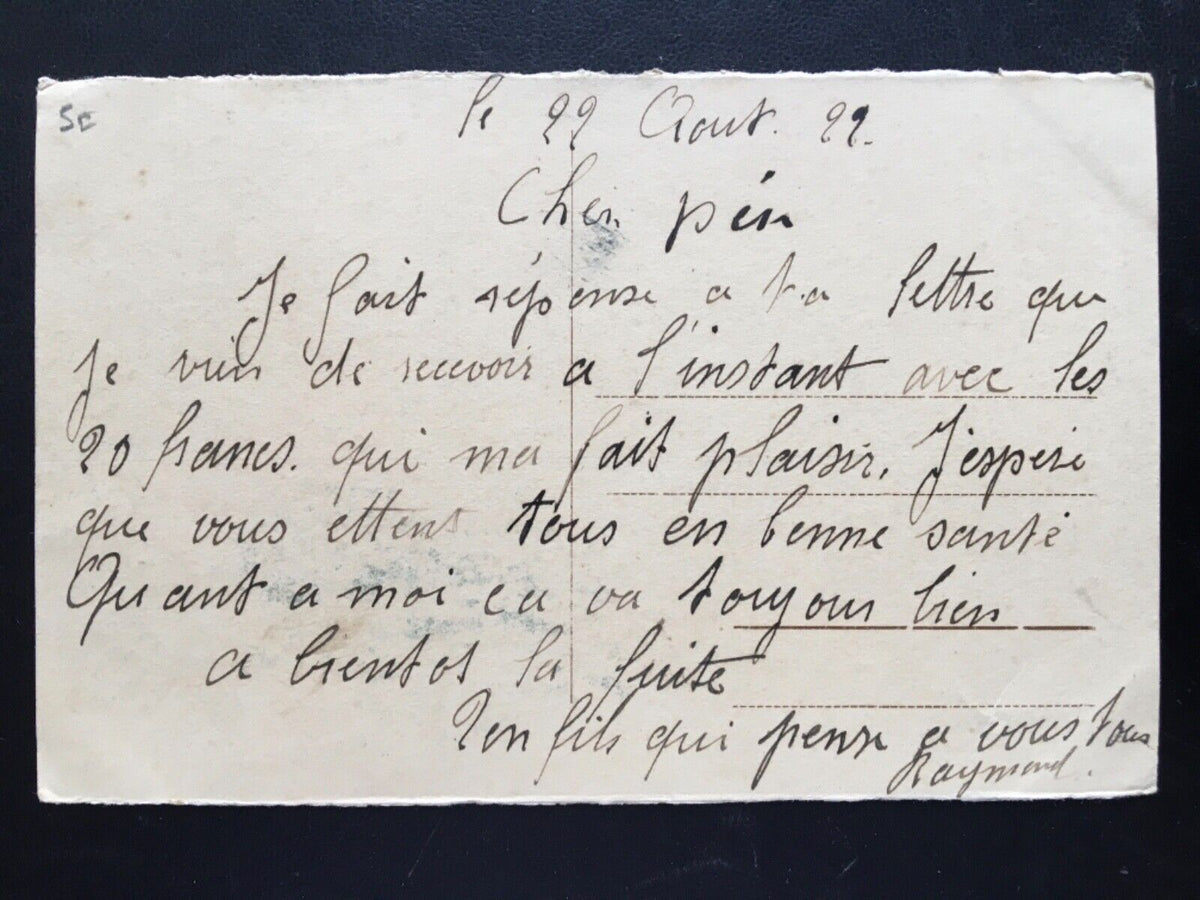 5e
le 22 Aout. 22.
Cher père
Je fait réponse a ta lettre que
Je vien de recevoir a l'instant avec les
20 francs. qui ma fait plaisir. J'espère
que vous ettent tous en bonne santé
Quant a moi ca va toujour bien
a bientot la suite
Ton fils qui pense a vous tous
Raymond.